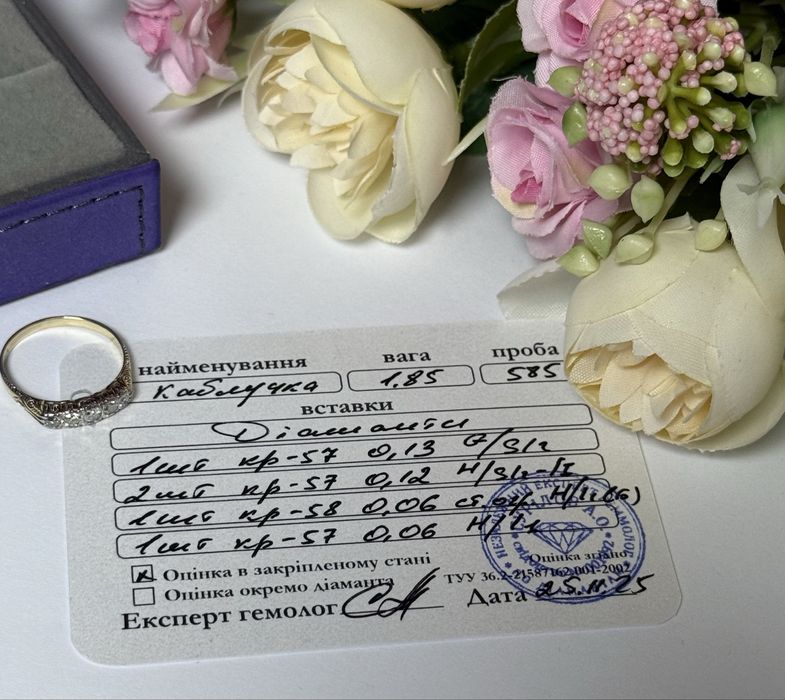 найменування вага проба
каблучка 1.85 585
вставки
Діаманти
1шт кр-57 0,13 G/SI2
2шт кр-57 0,12 H/SI2-I1
1шт кр-58 0,06 ст.огр. H/I1 (Б)
1шт кр-57 0,06 H/I1
Оцінка в закріпленому стані
Оцінка окремо діаманта
Оцінка згідно
ТУУ 36.2-21587162.001-2002
Експерт гемолог Дата 25.11.25